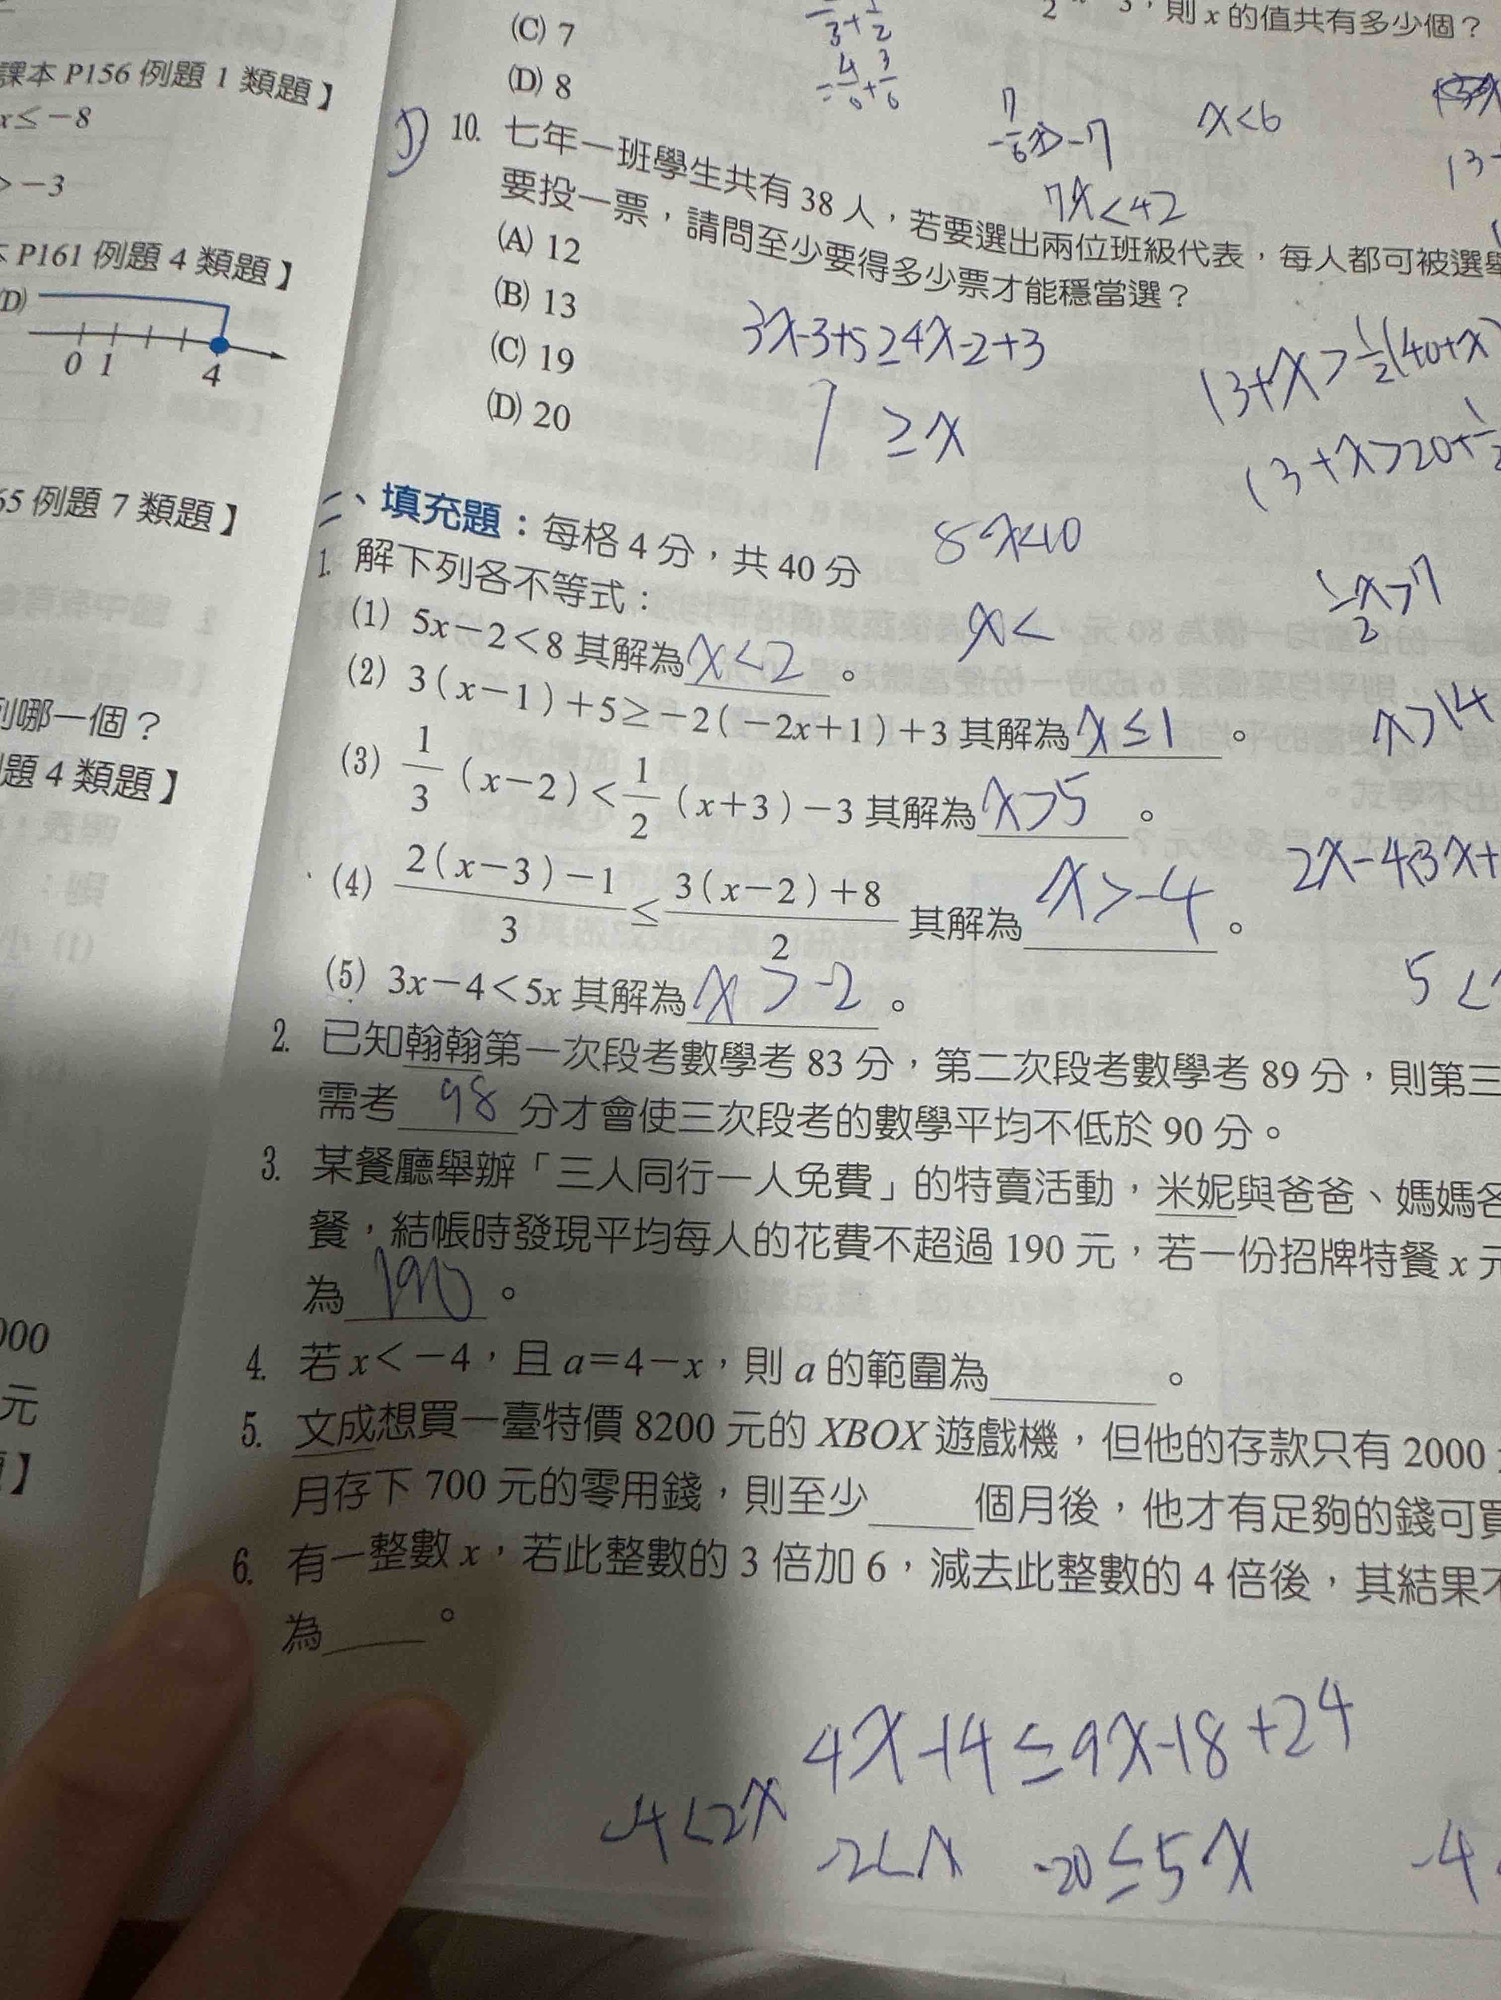 課本 P156 例題 1 類題】
x≤-8
>-3
P161 例題 4 類題】
(D)
0 1 4
65 例題 7 類題】
列哪一個？
題 4 類題】
000
元
】
則 x 的值共有多少個？
(C) 7
(D) 8
10. 七年一班學生共有 38 人，若要選出兩位班級代表，每人都可被選舉
要投一票，請問至少要得多少票才能穩當選？
(A) 12
(B) 13
(C) 19
(D) 20
x<6
7x<42
3x-3+5≥4x-2+3
1 ≥x
13+x>1/2(40+x)
13+x>20+
1/2x>7
x>14
5x<10
x<
二、填充題：每格 4 分，共 40 分
1. 解下列各不等式：
(1) 5x-2<8 其解為 x<2 。
(2) 3(x-1)+5≥-2(-2x+1)+3 其解為 x≤1 。
(3) 1/3 (x-2)<1/2 (x+3)-3 其解為 x>5 。
2x-4<3x+
(4) 2(x-3)-1/3 ≤ 3(x-2)+8/2 其解為 x>-4 。
5<
(5) 3x-4<5x 其解為 x>-2 。
2. 已知翰翰第一次段考數學考 83 分，第二次段考數學考 89 分，則第三
需考 98 分才會使三次段考的數學平均不低於 90 分。
3. 某餐廳舉辦「三人同行一人免費」的特賣活動，米妮與爸爸、媽媽各
餐，結帳時發現平均每人的花費不超過 190 元，若一份招牌特餐 x 元
為 。
4. 若 x<-4，且 a=4-x，則 a 的範圍為 。
5. 文成想買一臺特價 8200 元的 XBOX 遊戲機，但他的存款只有 2000
月存下 700 元的零用錢，則至少 個月後，他才有足夠的錢可買
6. 有一整數 x，若此整數的 3 倍加 6，減去此整數的 4 倍後，其結果不
為 。
4x-14≤9x-18+24
-4<2x
-2<x
-20≤5x
-4